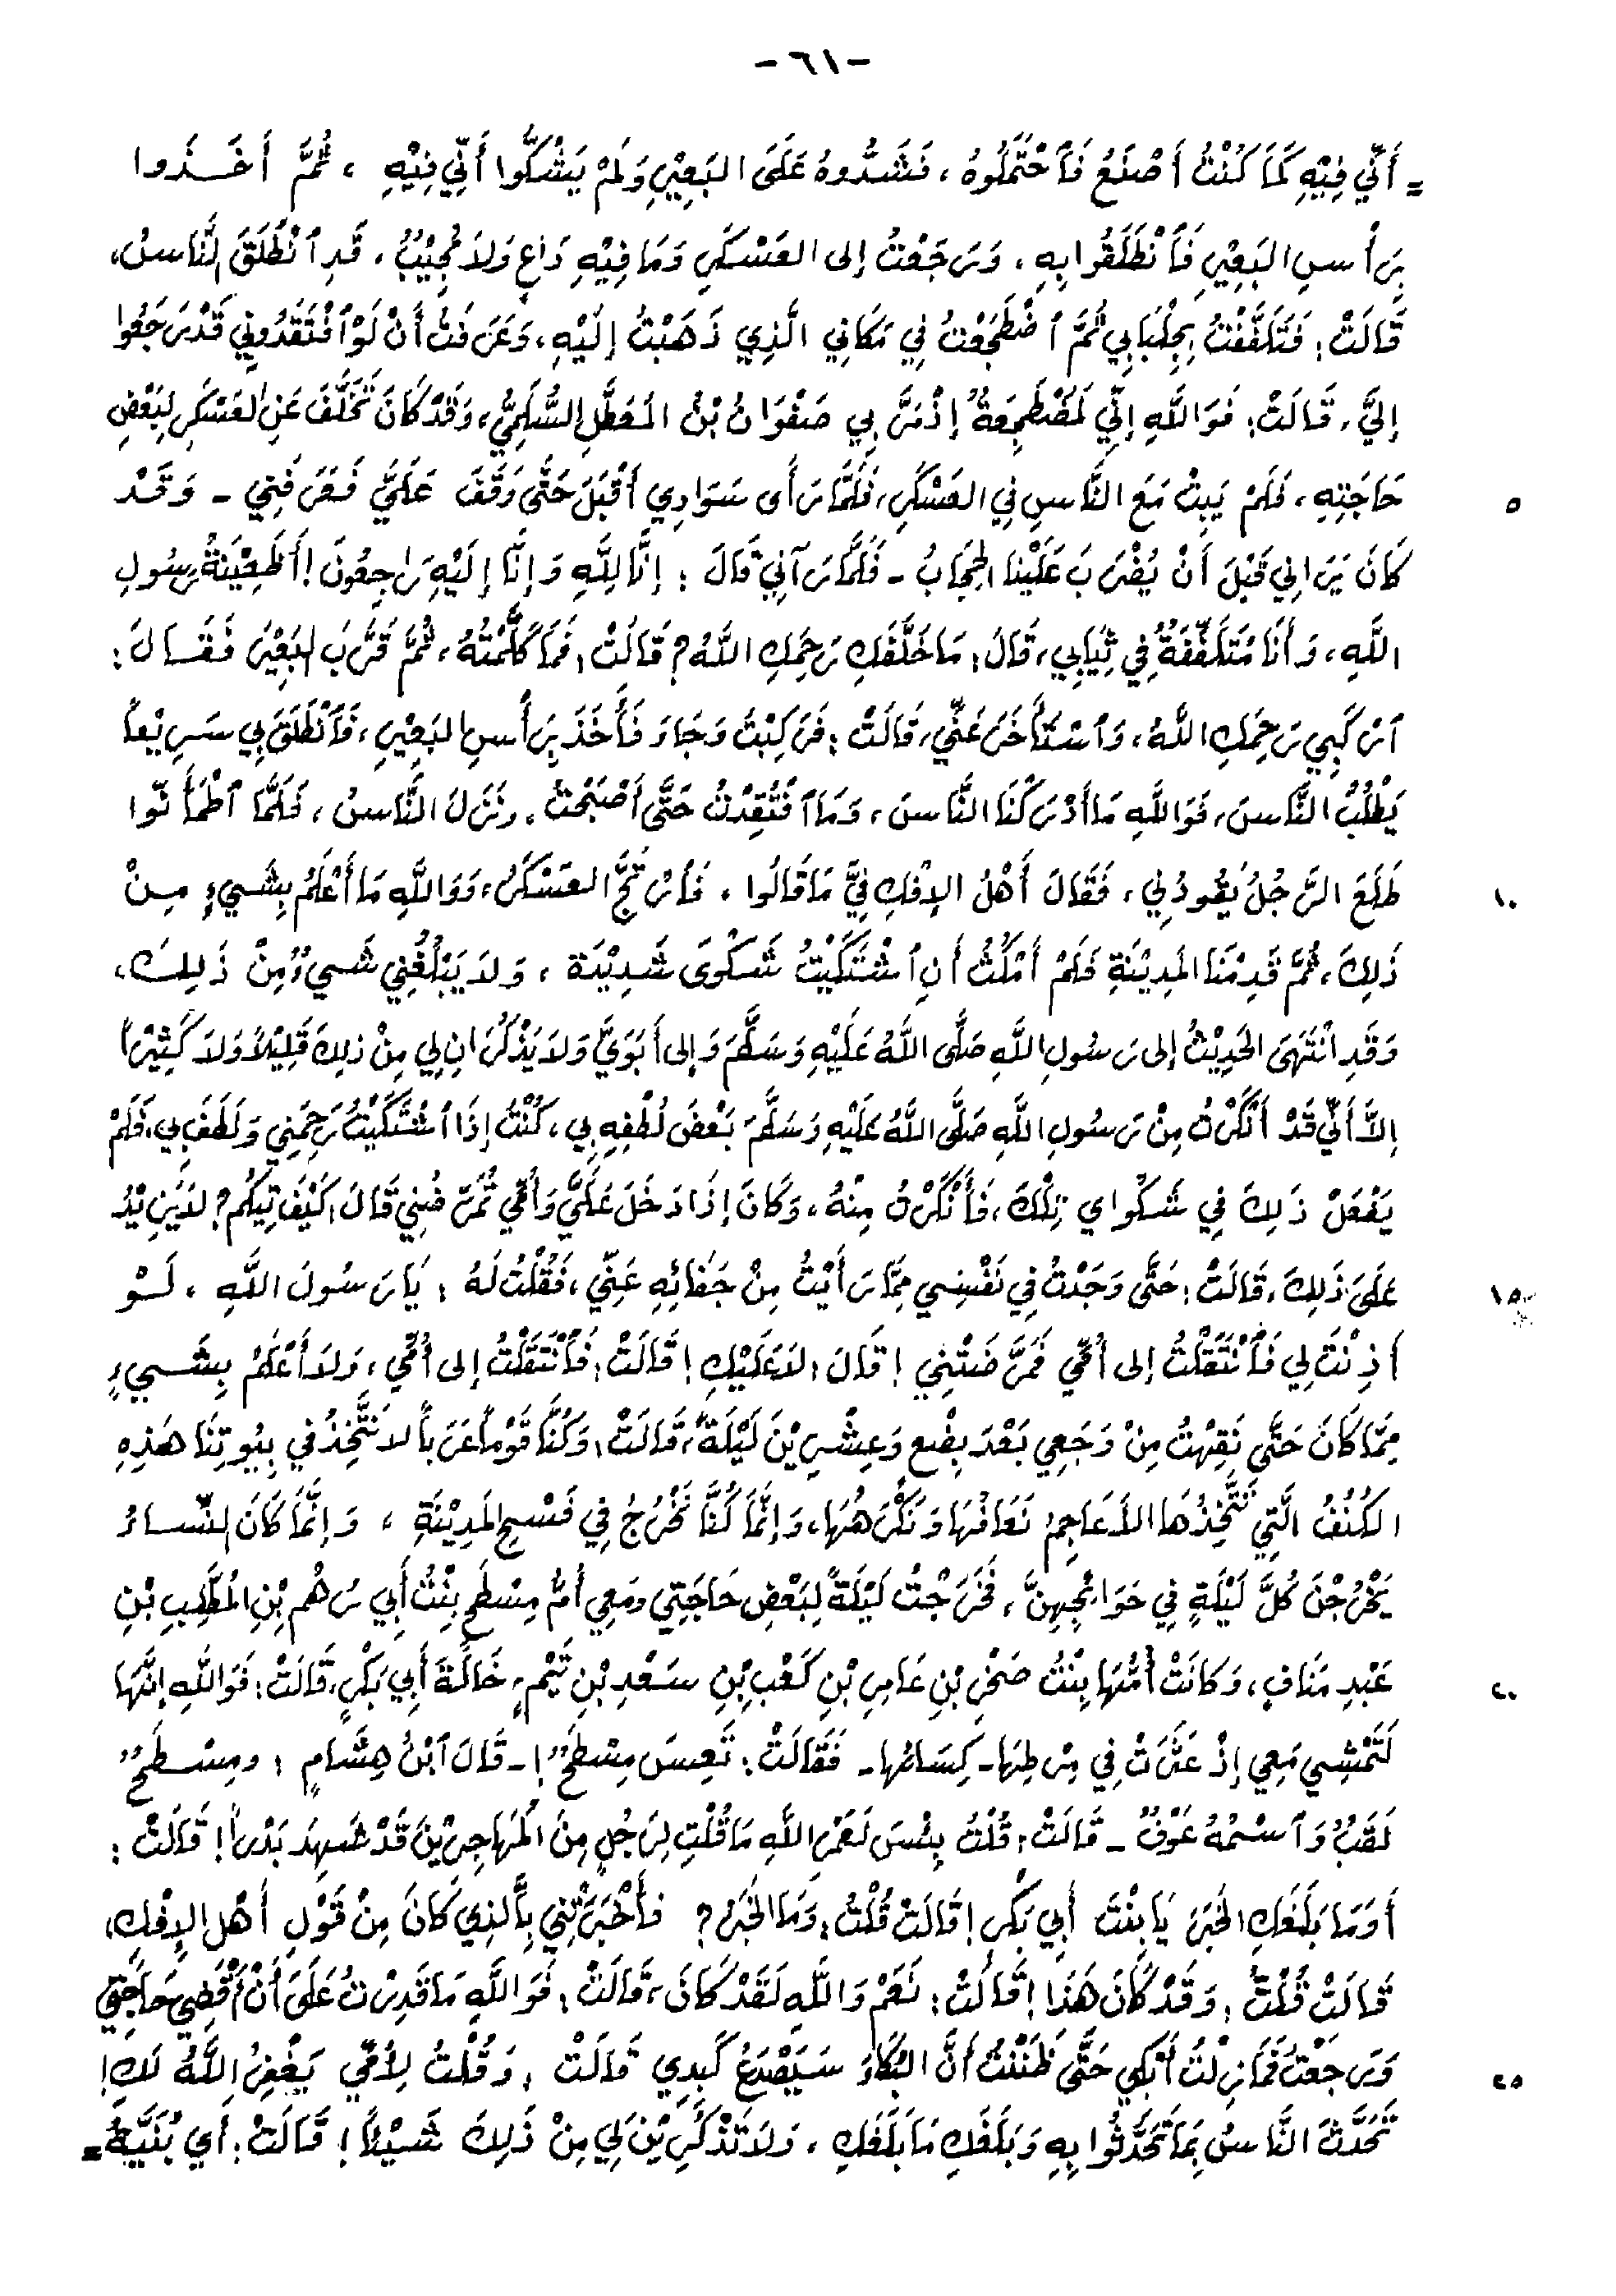 -٦١-
= أَنِّي فِيْهِ كَمَا كُنْتُ أَصْنَعُ فَٱحْتَمَلُوهُ، فَشَدُّوهُ عَلَى البَعِيْرِ وَلَمْ يَشُكُّوا أَنِّي فِيْهِ ، ثُمَّ أَخَـذُوا
بِرَأْسِ البَعِيْرِ فَٱنْطَلَقُوا بِهِ، وَرَجَعْتُ إلى العَسْكَرِ وَمَا فِيْهِ دَاعٍ وَلاَ مُجِيْبٌ، قَدِ ٱنْطَلَقَ النَّاسُ،
قَالَتْ: فَتَلَفَّفْتُ بِجِلْبَابِي ثُمَّ ٱضْطَجَعْتُ فِي مَكَانِي الَّذِي ذَهَبْتُ إلَيْهِ، وَعَرَفْتُ أَنْ لَوْ ٱفْتَقَدُونِي قَدْ رَجَعُوا
إليَّ، قَالَتْ: فَوَاللَّهِ إنِّي لَمُضْطَجِعَةٌ إذْ مَرَّ بِي صَفْوَانُ بْنُ المُعَطَّلِ السُّلَمِيُّ، وَقَدْ كَانَ تَخَلَّفَ عَنِ العَسْكَرِ لِبَعْضِ
حَاجَتِهِ، فَلَمْ يَبِتْ مَعَ النَّاسِ فِي العَسْكَرِ، فَلَمَّا رَأَى سَوَادِي أَقْبَلَ حَتَّى وَقَفَ عَلَيَّ فَعَرَفَنِي - وَقَدْ ٥
كَانَ يَرَانِي قَبْلَ أَنْ يُضْرَبَ عَلَيْنَا الحِجَابُ - فَلَمَّا رَآنِي قَالَ: إنَّا لِلَّهِ وَإنَّا إلَيْهِ رَاجِعُونَ! أَظَعِيْنَةُ رَسُولِ
اللَّهِ، وَأَنَا مُتَلَفِّفَةٌ فِي ثِيَابِي، قَالَ: مَا خَلَّفَكِ رَحِمَكِ اللَّهُ؟ قَالَتْ: فَمَا كَلَّمْتُهُ، ثُمَّ قَرَّبَ البَعِيْرَ فَقَـالَ:
ٱرْكَبِي رَحِمَكِ اللَّهُ، وَٱسْتَأْخَرَ عَنِّي، قَالَتْ: فَرَكِبْتُ وَجَاءَ فَأَخَذَ بِرَأْسِ البَعِيْرِ، فَٱنْطَلَقَ بِي سَرِيْعاً
يَطْلُبُ النَّاسَ، فَوَاللَّهِ مَا أَدْرَكْنَا النَّاسَ، وَمَا ٱفْتُقِدْتُ حَتَّى أَصْبَحْتُ، وَنَزَلَ النَّاسُ، فَلَمَّا ٱطْمَأَنّوا
طَلَعَ الرَّجُلُ يَقُودُ بِي، فَقَالَ أَهْلُ الإِفْكِ فِيَّ مَا قَالُوا، فَٱرْتَجَّ العَسْكَرُ، وَوَاللَّهِ مَا أَعْلَمُ بِشَيءٍ مِـنْ ١٠
ذَلِكَ، ثُمَّ قَدِمْنَا المَدِيْنَةِ فَلَمْ أَمْكُثْ أَنِ ٱشْتَكَيْتُ شَكْوَى شَدِيْدَة ، وَلاَ يَبْلُغُنِي شَيءٌ مِنْ ذَلِكَ،
وَقَدِ انْتَهَى الحَدِيْثُ إلى رَسُولِ اللَّهِ صَلَّى اللَّهُ عَلَيْهِ وَسَلَّمَ وَإلى أَبَوَيَّ وَلاَ يَذْكُرَانِ لِي مِنْ ذلِكَ قَلِيْلاً وَلاَ كَثِيْراً
إلاَّ أَنِّي قَدْ أَنْكَرْتُ مِنْ رَسُولِ اللَّهِ صَلَّى اللَّهُ عَلَيْهِ وَسَلَّمَ بَعْضَ لُطْفِهِ بِي، كُنْتُ إذَا ٱشْتَكَيْتُ رَحِمَنِي وَلَطَفَ بِي، فَلَمْ
يَفْعَلْ ذَلِكَ فِي شَكْوَاي تِلْكَ، فَأَنْكَرْتُ مِنْهُ، وَكَانَ إذَا دَخَلَ عَلَيَّ وَأُمِّي تُمَرِّضُنِي قَالَ: كَيْفَ تِيكُم؟ لاَ يَزِيْدُ
عَلَى ذَلِكَ، قَالَتْ: حَتَّى وَجَدْتُ فِي نَفْسِي مِمَّا رَأَيْتُ مِنْ جَفَائِهِ عَنِّي، فَقُلْتُ لَهُ: يَا رَسُولَ اللَّهِ ، لَـوْ ١٥
أَذِنْتَ لِي فَٱنْتَقَلْتُ إلى أُمِّي فَمَرَّضَتْنِي! قَالَ: لاَ عَلَيْكِ! قَالَتْ: فَٱنْتَقَلْتُ إلى أُمِّي، وَلاَ أَعْلَمُ بِشَـيءٍ
مِمَّا كَانَ حَتَّى نَقِهْتُ مِنْ وَجَعِي بَعْدَ بِضْعٍ وَعِشْرِيْنَ لَيْلَةً، قَالَتْ: وَكُنَّا قَوْماً عَرَباً لاَ نَتَّخِذُ فِي بِيُوتِنَا هَذِهِ
الكُنُفُ الَّتِي تَتَّخِذُهَا الأَعَاجِمُ نَعَافُهَا وَنَكْرَهُهَا، وَإنَّمَا كُنَّا نَخْرُجُ فِي فَسْحِ المَدِيْنَةِ ، وَإنَّمَا كَانَ النِّسَاءُ
يَخْرُجْنَ كُلَّ لَيْلَةٍ فِي حَوَائِجِهِنَّ، فَخَرَجْتُ لَيْلَةً لِبَعْضِ حَاجَتِي وَمَعِي أُمُّ مِسْطَحٍ بِنْتُ أَبِي رُهْمِ بْنِ المُطَّلِبِ بْنِ
عَبْدِ مَنَافٍ، وَكَانَتْ أُمُّهَا بِنْتُ صَخْرِ بْنِ عَامِرِ بْنِ كَعْبِ بْنِ سَعْدِ بْنِ تَيْمٍ، خَالَةَ أَبِي بَكْرٍ، قَالَتْ: فَوَاللَّهِ إنَّهَا ٢٠
لَتَمْشِي مَعِي إذْ عَثَرَتْ فِي مِرْطِهَا - كِسَائِها - فَقَالَتْ: تَعِسَ مِسْطَحٌ! - قَالَ ٱبْنُ هِشَامٍ: وَمِسْـطَحٌ
لَقَبٌ وَٱسْمُهُ عَوْفٌ - قَالَتْ: قُلْتُ بِئْسَ لَعَمْرِ اللَّهِ مَا قُلْتِ لِرَجُلٍ مِنَ المُهَاجِرِيْنَ قَدْ شَهِدَ بَدْراً! قَالَتْ:
أَوَمَا بَلَغَكِ الخَبَرُ يَا بِنْتَ أَبِي بَكْرٍ! قَالَتْ قُلْتُ: وَمَا الخَبَرُ؟ فَأَخْبَرَتْنِي بِٱلذِي كَانَ مِنْ قَوْلِ أَهْلِ الإِفْكِ،
قَالَتْ قُلْتُ: وَقَدْ كَانَ هَذَا! قَالَتْ: نَعَمْ وَاللَّهِ لَقَدْ كَانَ، قَالَتْ: فَوَاللَّهِ مَا قَدِرْتُ عَلَى أَنْ أَقْضِي حَاجَتِي
وَرَجَعْتُ فَمَا زِلْتُ أَبْكِي حَتَّى ظَنَنْتُ أَنَّ البُكَاءَ سَيَصْدَعُ كَبِدِي قَالَتْ: وَقُلْتُ لِأُمِّي يَغْفِرُ اللَّهُ لَكِ! ٢٥
تَحَدَّثَ النَّاسُ بِمَا تَحَدَّثُوا بِهِ وَبَلَغَكِ مَا بَلَغَكِ، وَلاَ تَذْكُرِيْنَ لِي مِنْ ذَلِكَ شَيْئاً! قَالَتْ: أَي بُنَيَّةُ =